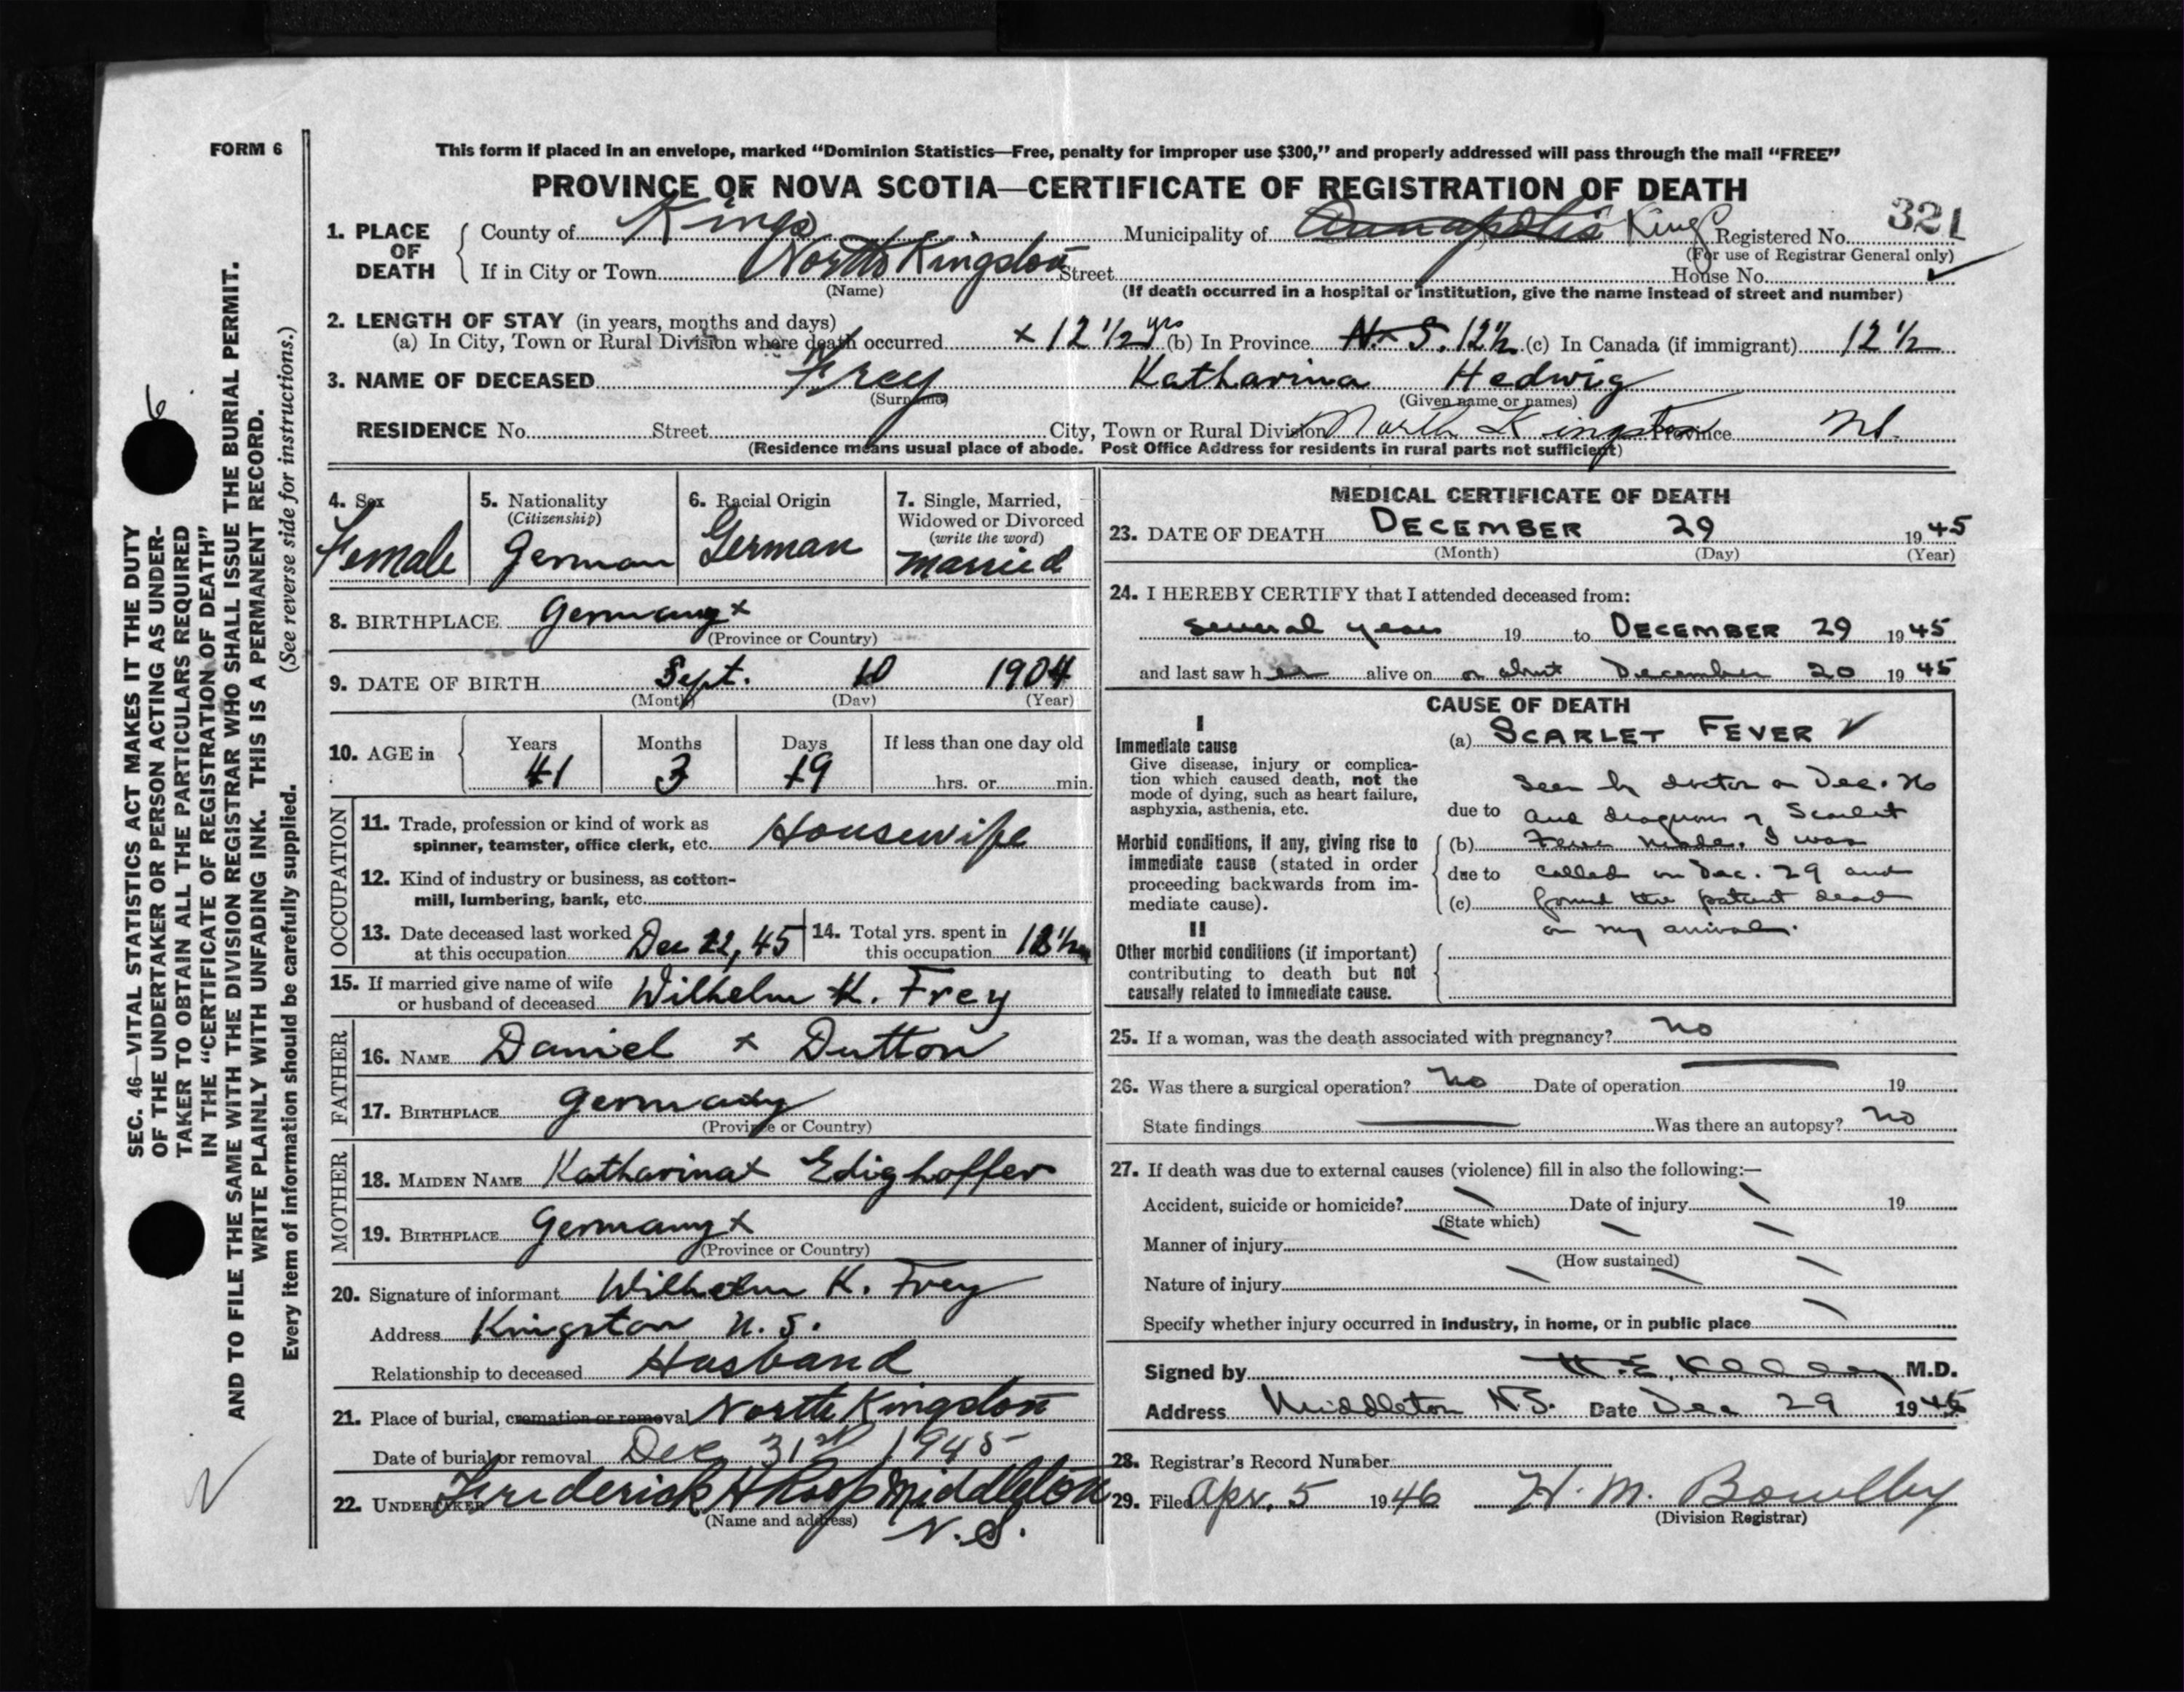 FORM 6
This form if placed in an envelope, marked “Dominion Statistics—Free, penalty for improper use $300,” and properly addressed will pass through the mail “FREE”
PROVINCE OF NOVA SCOTIA—CERTIFICATE OF REGISTRATION OF DEATH
321
1. PLACE OF DEATH
County of Kings Municipality of Annapolis Kings Registered No.
(For use of Registrar General only)
If in City or Town North Kingston Street House No.
(Name) (If death occurred in a hospital or institution, give the name instead of street and number)
2. LENGTH OF STAY (in years, months and days)
(a) In City, Town or Rural Division where death occurred x 12 1/2 yrs (b) In Province N.S. 12 1/2 (c) In Canada (if immigrant) 12 1/2
3. NAME OF DECEASED Frey Katharina Hedwig
(Surname) (Given name or names)
RESIDENCE No. Street City, Town or Rural Division North Kingston Province NS.
(Residence means usual place of abode. Post Office Address for residents in rural parts not sufficient)
4. Sex
Female
5. Nationality
(Citizenship)
German
6. Racial Origin
German
7. Single, Married,
Widowed or Divorced
(write the word)
married
8. BIRTHPLACE Germany x
(Province or Country)
9. DATE OF BIRTH Sept. 10 1904
(Month) (Day) (Year)
10. AGE in
Years Months Days If less than one day old
41 3 19 hrs. or min.
OCCUPATION
11. Trade, profession or kind of work as
spinner, teamster, office clerk, etc. Housewife
12. Kind of industry or business, as cotton-
mill, lumbering, bank, etc.
13. Date deceased last worked
at this occupation Dec 22, 45
14. Total yrs. spent in
this occupation
15. If married give name of wife
or husband of deceased Wilhelm K. Frey
FATHER
16. NAME Daniel x Dutton
17. BIRTHPLACE Germany
(Province or Country)
MOTHER
18. MAIDEN NAME Katharina x Edighoffer
19. BIRTHPLACE Germany x
(Province or Country)
20. Signature of informant Wilhelm K. Frey
Address Kingston N.S.
Relationship to deceased Husband
21. Place of burial, cremation or removal North Kingston
Date of burial or removal Dec 31st 1945
22. UNDERTAKER Frederick H Roop Middleton
(Name and address) N.S.
MEDICAL CERTIFICATE OF DEATH
23. DATE OF DEATH DECEMBER 29 1945
(Month) (Day) (Year)
24. I HEREBY CERTIFY that I attended deceased from:
several years 19 to DECEMBER 29 1945
and last saw her alive on or about December 20 1945
CAUSE OF DEATH
I
Immediate cause
Give disease, injury or complica-
tion which caused death, not the
mode of dying, such as heart failure,
asphyxia, asthenia, etc.
(a) SCARLET FEVER
Seen by doctor on Dec. 26
due to and diagnosis of Scarlet
Morbid conditions, if any, giving rise to
immediate cause (stated in order
proceeding backwards from im-
mediate cause).
(b) Fever made. I was
due to called on Dec. 29 and
(c) found the patient dead
on my arrival.
II
Other morbid conditions (if important)
contributing to death but not
causally related to immediate cause.
25. If a woman, was the death associated with pregnancy? no
26. Was there a surgical operation? no Date of operation 19
State findings Was there an autopsy? no
27. If death was due to external causes (violence) fill in also the following:—
Accident, suicide or homicide? Date of injury 19
(State which)
Manner of injury
(How sustained)
Nature of injury
Specify whether injury occurred in industry, in home, or in public place
Signed by H. E. M.D.
Address Middleton N.S. Date Dec 29 1945
28. Registrar's Record Number
29. Filed Apr. 5 1946 H. M. Bowlby
(Division Registrar)
SEC. 46—VITAL STATISTICS ACT MAKES IT THE DUTY
OF THE UNDERTAKER OR PERSON ACTING AS UNDER-
TAKER TO OBTAIN ALL THE PARTICULARS REQUIRED
IN THE “CERTIFICATE OF REGISTRATION OF DEATH”
AND TO FILE THE SAME WITH THE DIVISION REGISTRAR WHO SHALL ISSUE THE BURIAL PERMIT.
WRITE PLAINLY WITH UNFADING INK. THIS IS A PERMANENT RECORD.
Every item of information should be carefully supplied. (See reverse side for instructions.)
6